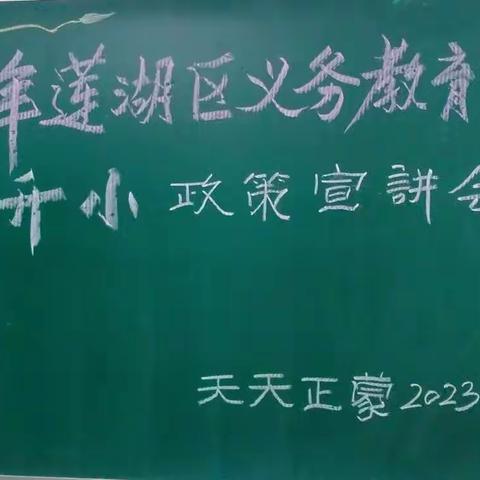 年莲湖区义务教育
升小 政策宣講会
天天正蒙2023